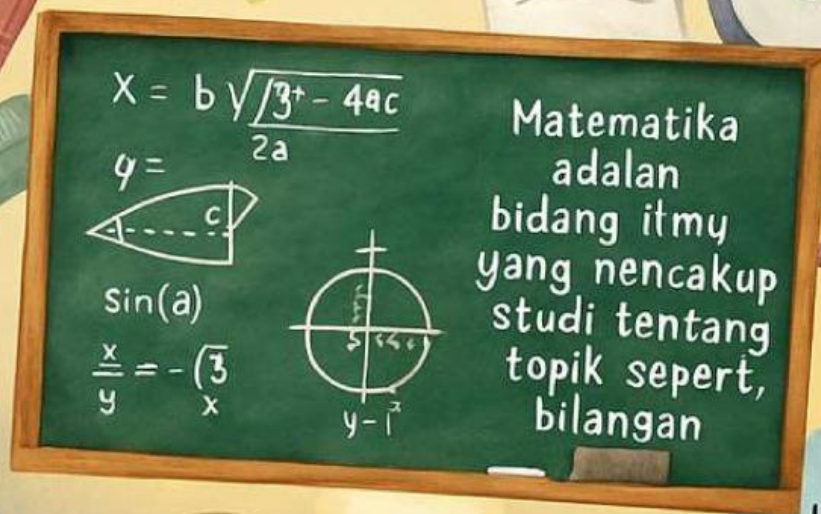 x = b√/3⁺ - 4ac
2a
y =
c
sin(a)
x/y = -(3
x
y-1
Matematika
adalan
bidang itmy
yang nencakup
studi tentang
topik sepert,
bilangan